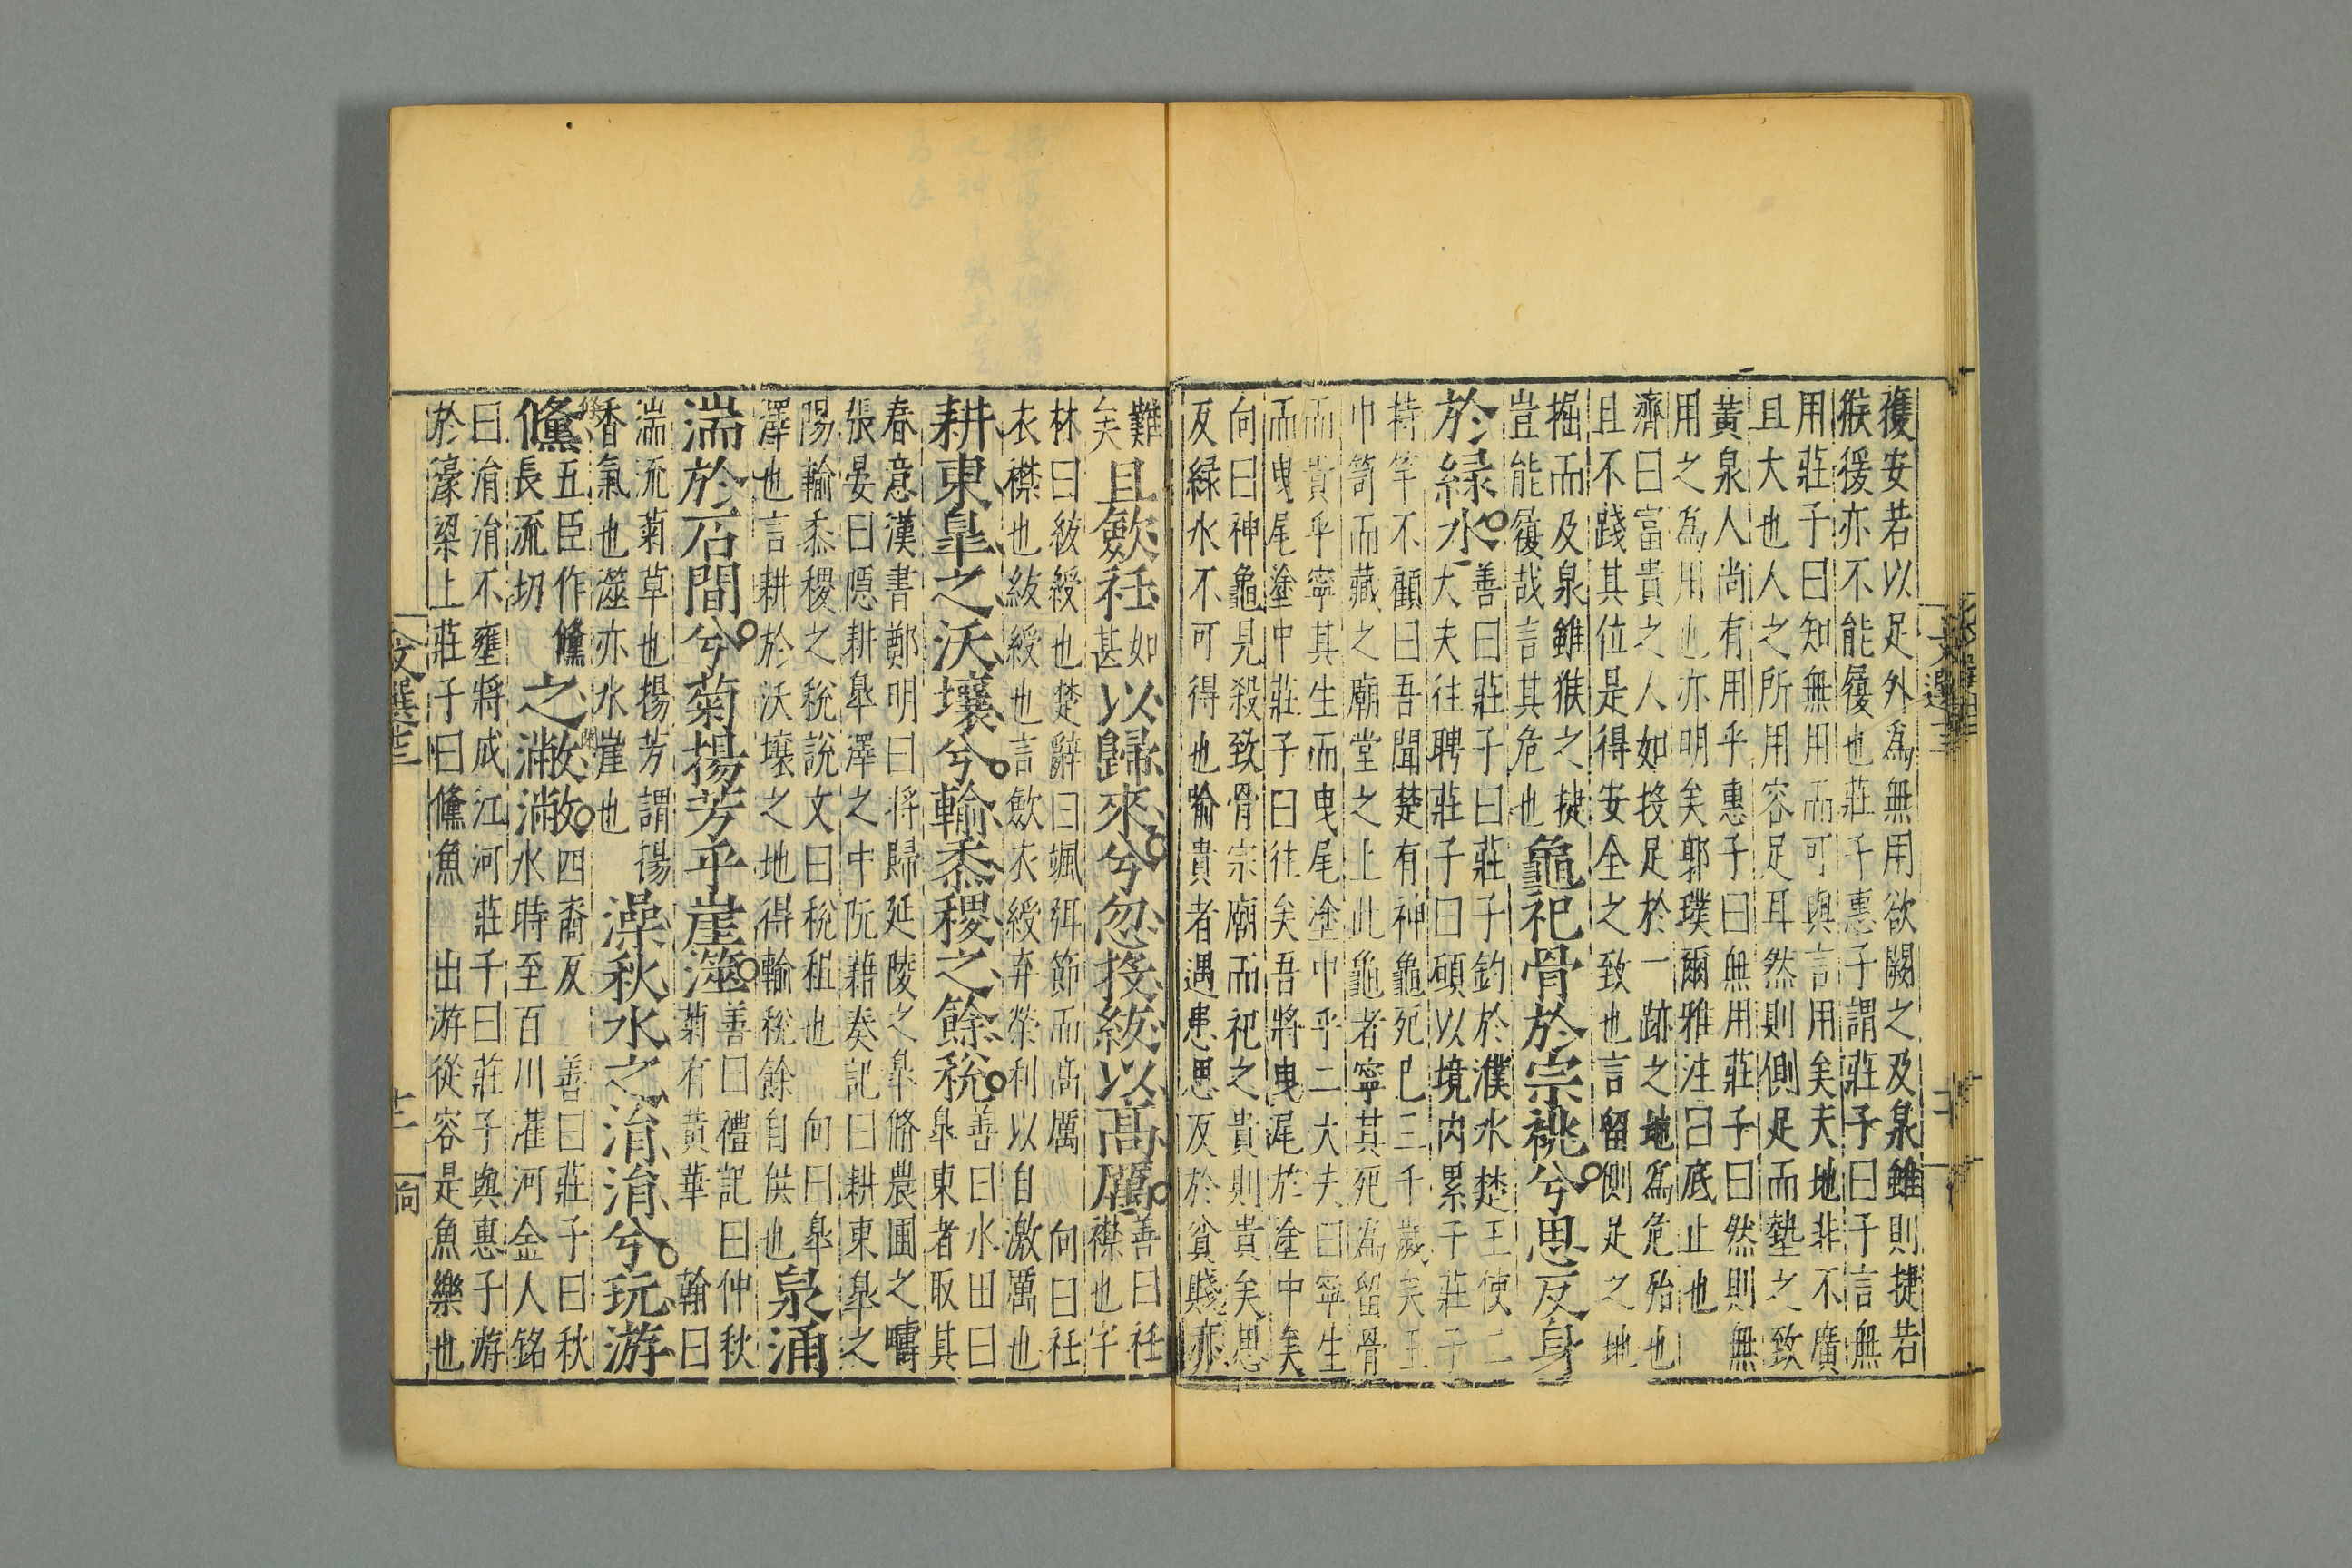 復安若以足外爲無用欲闕之及泉雖則捷若
猴猨亦不能履也莊子惠子謂莊子曰子言無
用莊子曰知無用而可與言用矣夫地非不廣
且大也人之所用容足耳然則側足而墊之致
黃泉人尚有用乎惠子曰無用莊子曰然則無
用之爲用也亦明矣郭璞爾雅注曰底止也
濟曰富貴之人如投足於一跡之地爲危殆也
且不踐其位是得安全之致也言留側足之地
掘而及泉雖猴之捷
豈能履哉言其危也
龜祀骨於宗祧兮思反身
於緑水
善曰莊子曰莊子釣於濮水楚王使二
大夫往聘莊子曰碩以境內累子莊子
持竿不顧曰吾聞楚有神龜死已三千歲矣王
巾笥而藏之廟堂之上此龜者寧其死爲留骨
而貴乎寧其生而曳尾塗中乎二大夫曰寧生
而曳尾塗中莊子曰往矣吾將曳尾於塗中矣
向曰神龜見殺致骨宗廟而祀之貴則貴矣思
反緑水不可得也喻貴者遇患思反於貧賤亦
難
矣
且斂衽
如
甚
以歸來兮忽投紱以高厲
善曰衽
襟也字
林曰紱綬也楚辭曰颯弭節而高厲 向曰衽
衣襟也紱綬也言斂衣綬弃榮利以自激厲也
耕東臯之沃壤兮輸黍稷之餘稅
善曰水田曰
臯東者取其
春意漢書鄭明曰將歸延陵之臯脩農圃之疇
張晏曰隱耕臯澤之中阮藉奏記曰耕東臯之
陽輸黍稷之稅說文曰稅租也 向曰臯
澤也言耕於沃壤之地得輸稅餘自供也
泉涌
湍於石間兮菊揚芳乎崖澨
善曰禮記曰仲秋
菊有黃華 翰曰
湍流菊草也揚芳謂揚
香氣也澨亦水崖也
澡秋水之涓涓兮玩游
鯈
五臣作鯈
長流切
之潎潎
四裔反 善曰莊子曰秋
水時至百川灌河金人銘
曰涓涓不壅將成江河莊子曰莊子與惠子游
於濠梁上莊子曰鯈魚 出游從容是魚樂也